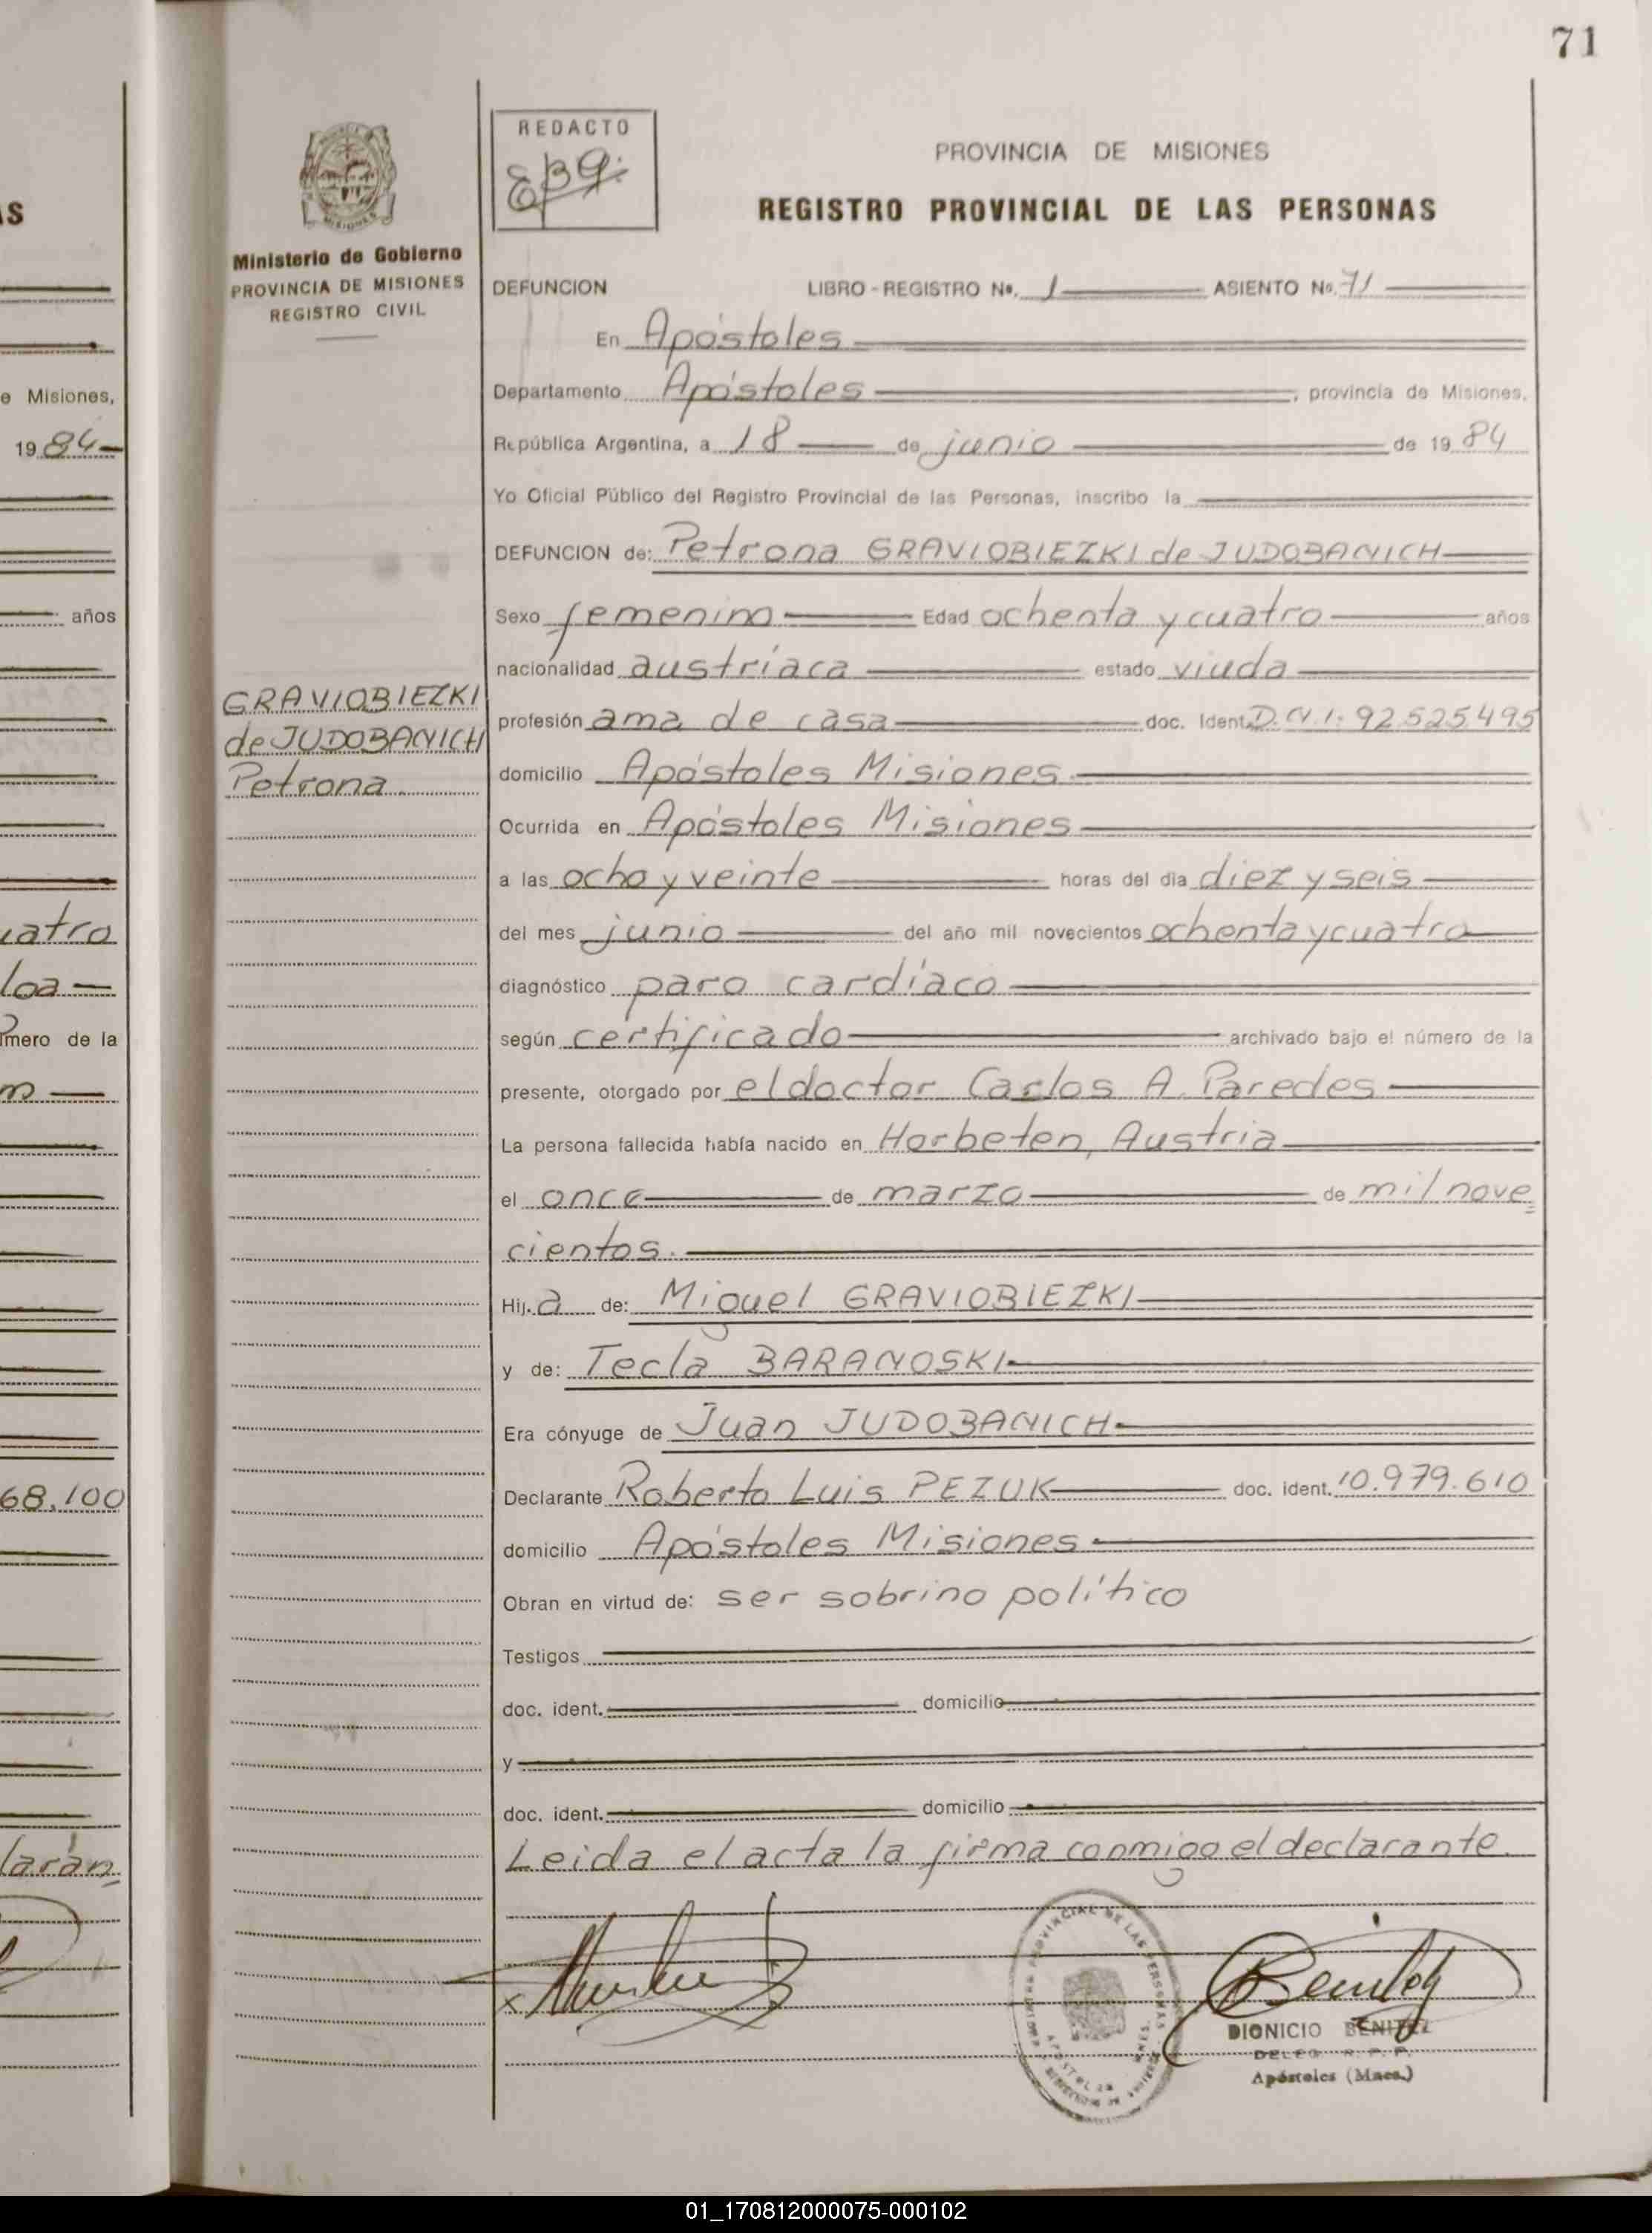 71
REDACTO
EBG.
PROVINCIA DE MISIONES
REGISTRO PROVINCIAL DE LAS PERSONAS
Ministerio de Gobierno
PROVINCIA DE MISIONES
REGISTRO CIVIL
DEFUNCION LIBRO - REGISTRO No. 1 ASIENTO No. 71
En Apóstoles
Departamento Apóstoles, provincia de Misiones,
República Argentina, a 18 de junio de 1984
Yo Oficial Público del Registro Provincial de las Personas, inscribo la
DEFUNCION de: Petrona GRAVIOBIEZKI de JUDOBANICH
Sexo femenino Edad ochenta y cuatro años
nacionalidad austríaca estado viuda
GRAVIOBIEZKI
de JUDOBANICH
Petrona
profesión ama de casa doc. Ident. D.N.I: 92.525.495
domicilio Apóstoles Misiones
Ocurrida en Apóstoles Misiones
a las ocho y veinte horas del día diez y seis
del mes junio del año mil novecientos ochenta y cuatro
diagnóstico paro cardíaco
según certificado archivado bajo el número de la
presente, otorgado por el doctor Carlos A. Paredes
La persona fallecida había nacido en Horbeten, Austria
el once de marzo de mil nove
cientos.
Hij.a de: Miguel GRAVIOBIEZKI
y de: Tecla BARANOSKI
Era cónyuge de Juan JUDOBANICH
Declarante Roberto Luis PEZUK doc. ident. 10.979.610
domicilio Apóstoles Misiones
Obran en virtud de: ser sobrino político
Testigos
doc. ident. domicilio
y
doc. ident. domicilio
Leida el acta la firma conmigo el declarante.
DIONICIO BENITEZ
DELEG. R. P. P.
Apóstoles (Mnes.)
AS
e Misiones,
1984
años
uatro
loa
úmero de la
68.100
larán
01_170812000075-000102